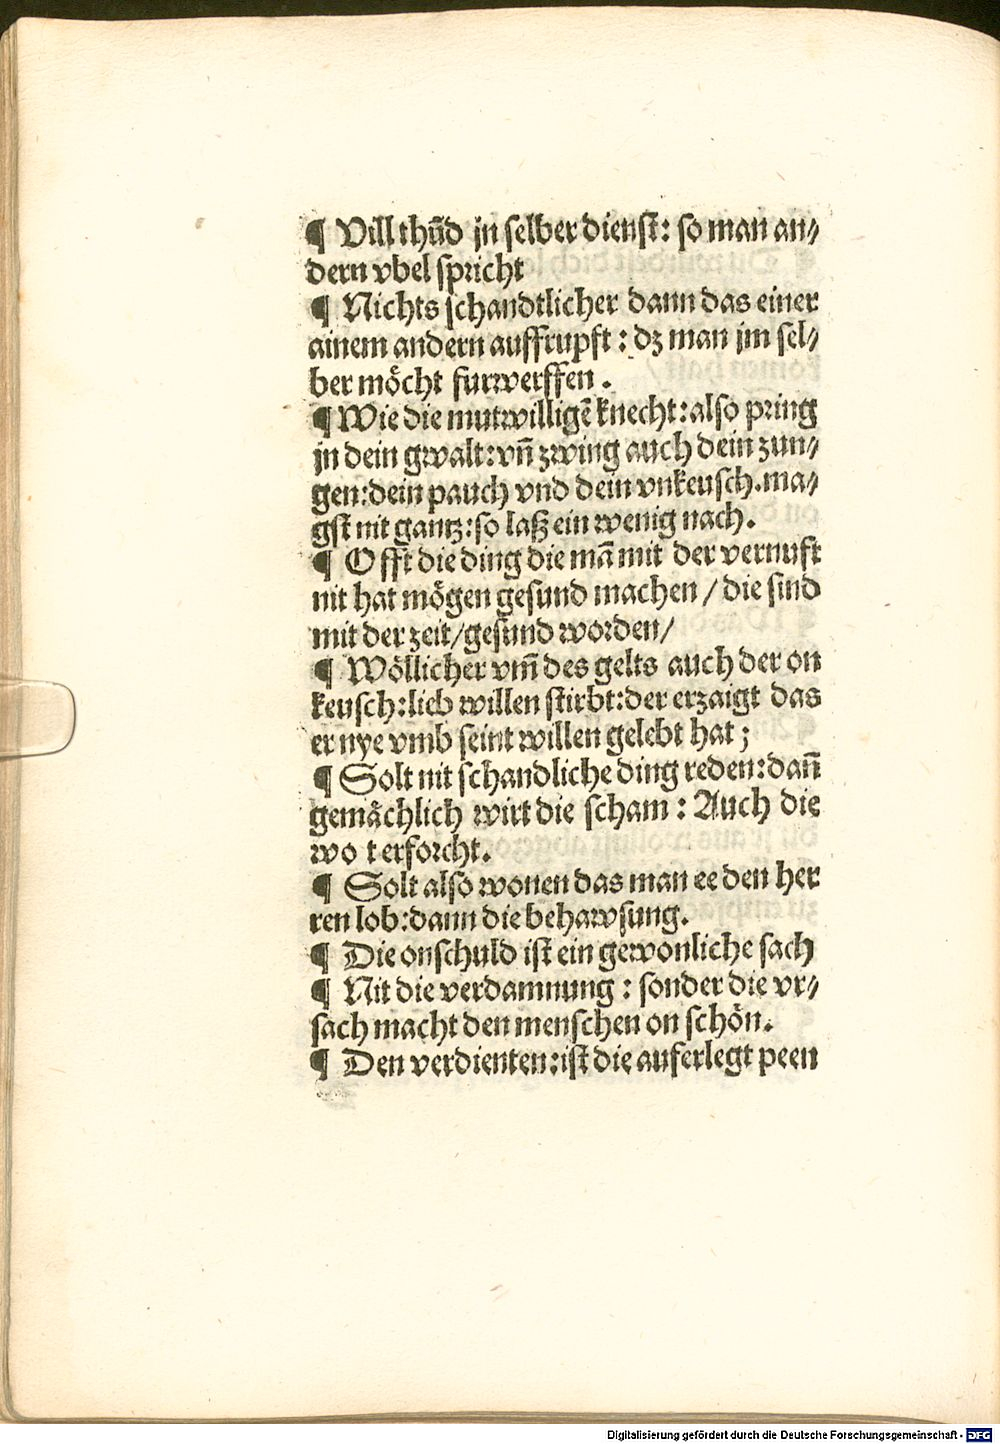 ¶ Vill thůd jn selber dienst: so man an⸗
dern vbel spricht
¶ Nichts schandtlicher dann das einer
ainem andern auffrupft : dz man jm sel⸗
ber möcht furwerffen .
¶ Wie die mutwilligē knecht:also pring
jn dein gwalt:vn̄ zwing auch dein zun⸗
gen:dein pauch vnd dein vnkeusch.ma⸗
gst nit gantz:so laß ein wenig nach.
¶ Offt die ding die mā mit der vernuft
nit hat mögen gesund machen / die sind
mit der zeit/gesund worden/
¶ Wöllicher vm̄ des gelts auch der on
keusch:lieb willen stirbt:der erzaigt das
er nye vmb seint willen gelebt hat ;
¶ Solt nit schandliche ding reden:dan̄
gemächlich wirt die scham : Auch die
wo t erforcht.
¶ Solt also wonen das man ee den her
ren lob:dann die behawsung.
¶ Die onschuld ist ein gewonliche sach
¶ Nit die verdamnung : sonder die vr⸗
sach macht den menschen on schön.
¶ Den verdienten:ist die auferlegt peen
Digitalisierung gefördert durch die Deutsche Forschungsgemeinschaft - DFG